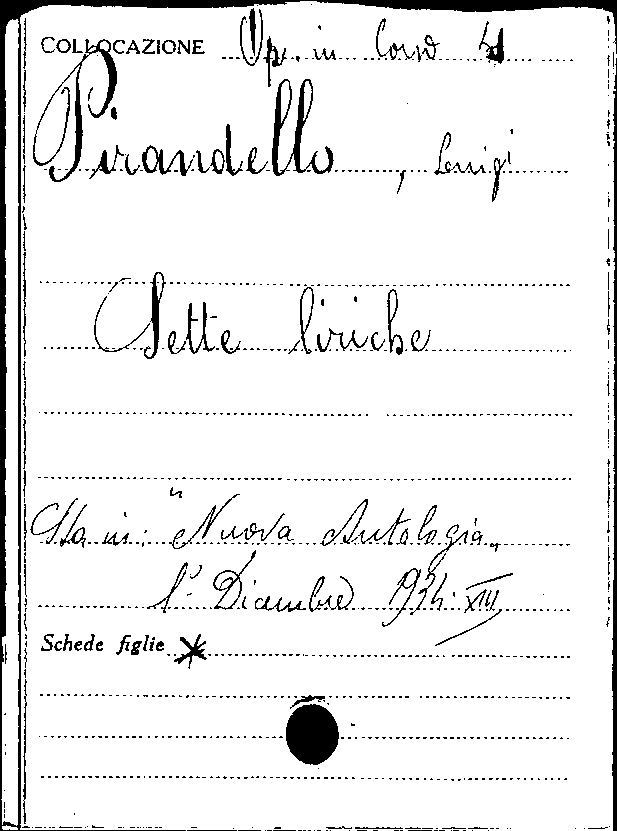 COLLOCAZIONE Op. in Corso
Pirandello, Luigi
Sette liriche
Sta in: "Nuova Antologia„
1° Dicembre 1934-XIII
Schede figlie